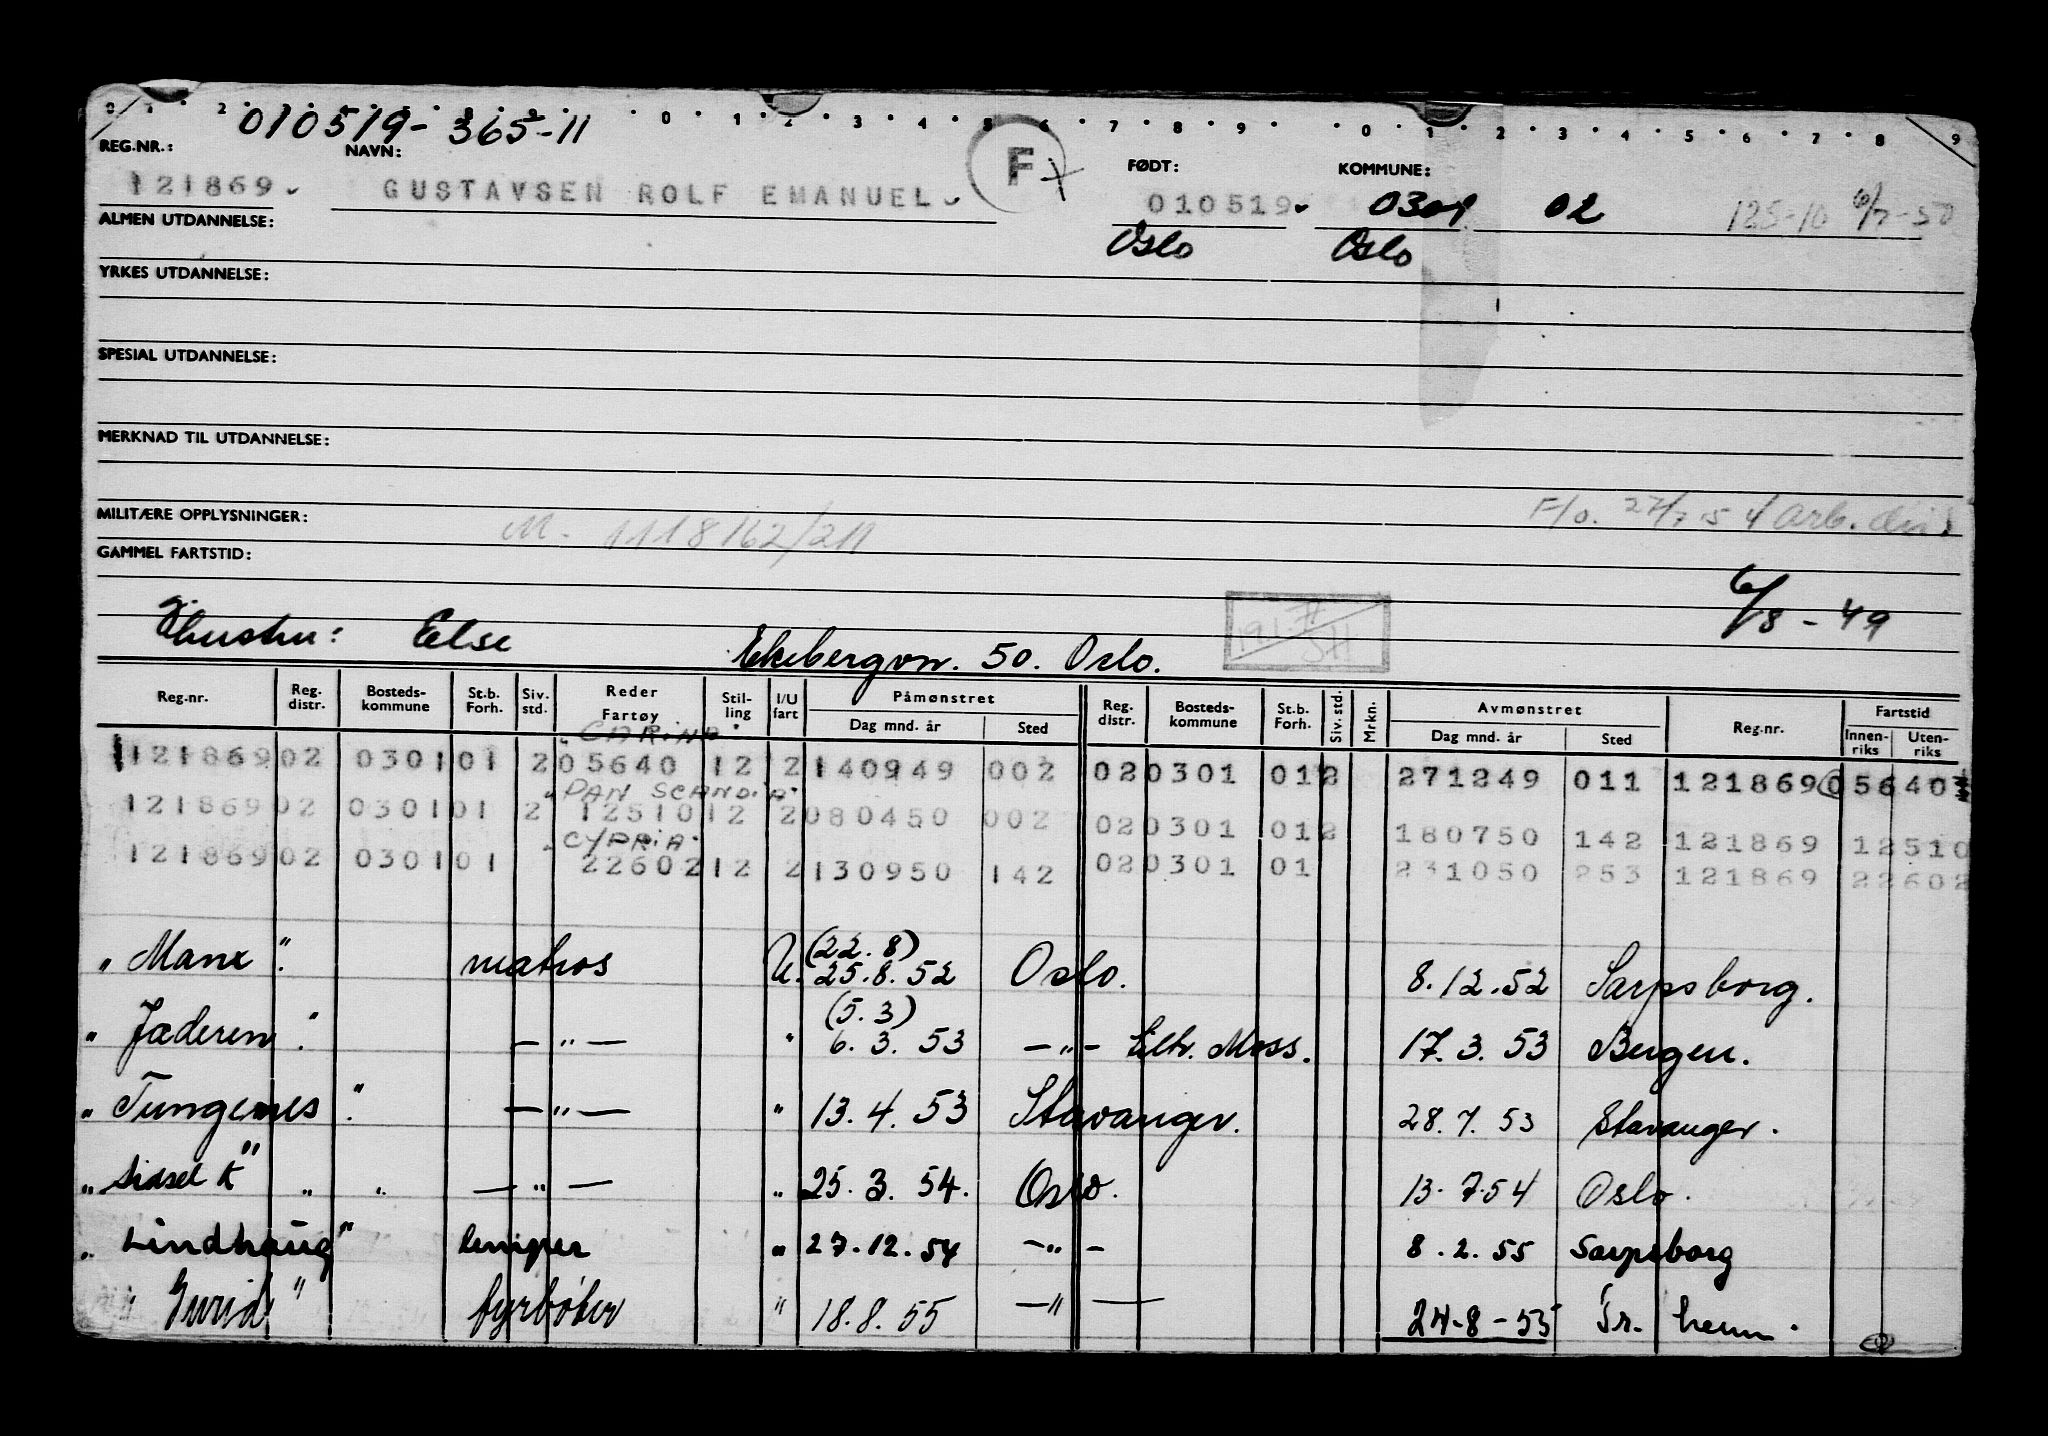 0 1 2 3 4 5 6 7 8 9 0 1 2 3 4 5 6 7 8 9 0 1 2 3 4 5 6 7 8 9
010519-365-11
REG.NR.: NAVN: FØDT: KOMMUNE:
121869 GUSTAVSEN ROLF EMANUEL F 010519 0301 02 125-10 6/7-50
ALMEN UTDANNELSE: Oslo Oslo
YRKES UTDANNELSE:
SPESIAL UTDANNELSE:
MERKNAD TIL UTDANNELSE:
MILITÆRE OPPLYSNINGER: M. 1118162/211 F/o. 27/7-54 arb.
GAMMEL FARTSTID:
6/8-49
g. Hustru: Else Ekebergvn. 50. Oslo.
Reg.nr. Reg. distr. Bosteds-kommune St.b. Forh. Siv. std. Reder Fartøy Stil-ling I/U fart Påmønstret Dag mnd. år Sted Reg. distr. Bosteds-kommune St.b. Forh. Siv. std. Mrkn. Avmønstret Dag mnd. år Sted Reg.nr. Fartstid Innen-riks Uten-riks
"CARINA"
121869 02 0301 01 2 05640 12 2 140949 002 02 0301 01 2 271249 011 121869 05640
"PAN SCANDIA"
121869 02 0301 01 2 12510 12 2 080450 002 02 0301 01 2 180750 142 121869 12510
"CYPRIA"
121869 02 0301 01 22602 12 2 130950 142 02 0301 01 231050 253 121869 22602
(22.8)
"Manx". matros U. 25.8.52 Oslo. 8.12.52 Sarpsborg.
(5.3)
"Jæderen". — " — " 6.3.53 — " — Eltr. Moss. 17.3.53 Bergen.
"Tungenes". — " — " 13.4.53 Stavanger. 28.7.53 Stavanger.
"Sidsel K" " " — " — " 25.3.54. Oslo. 13.7.54 Oslo.
"Lindhaug" lemper " 27.12.54 — " — 8.2.55 Sarpsborg
"Gurid" fyrbøter " 18.8.55 — " — 24-8-55 Tr. heim.